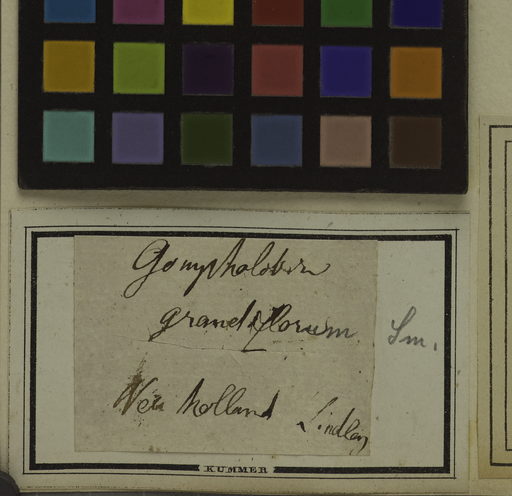 Gompholobium
grandiflorum Sm.
New holland Lindley
KUMMER